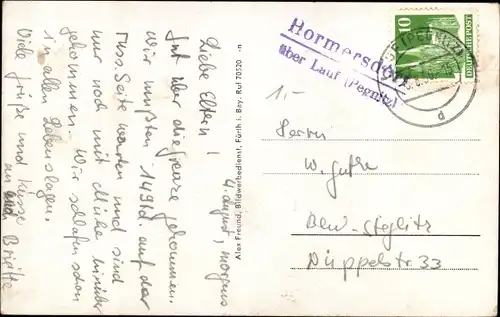 4. August, morgens
Liebe Eltern!
Gut über die Grenze gekommen.
Wir mußten 14 Std. auf der
Russ. Seite warten und sind
nur noch mit Mühe hinüber
gekommen. Wir schlafen schon
in allen Lebenslagen.
Viele Grüße und Küsse
an
Brigitte
Alex Freund, Bildwerbedienst, Fürth i. Bay. Ruf 70520
Hormersdorf
über Lauf (Pegnitz)
10
DEUTSCHE POST
d
1-
Herrn
W.
Bln.-Steglitz
Düppelstr. 33